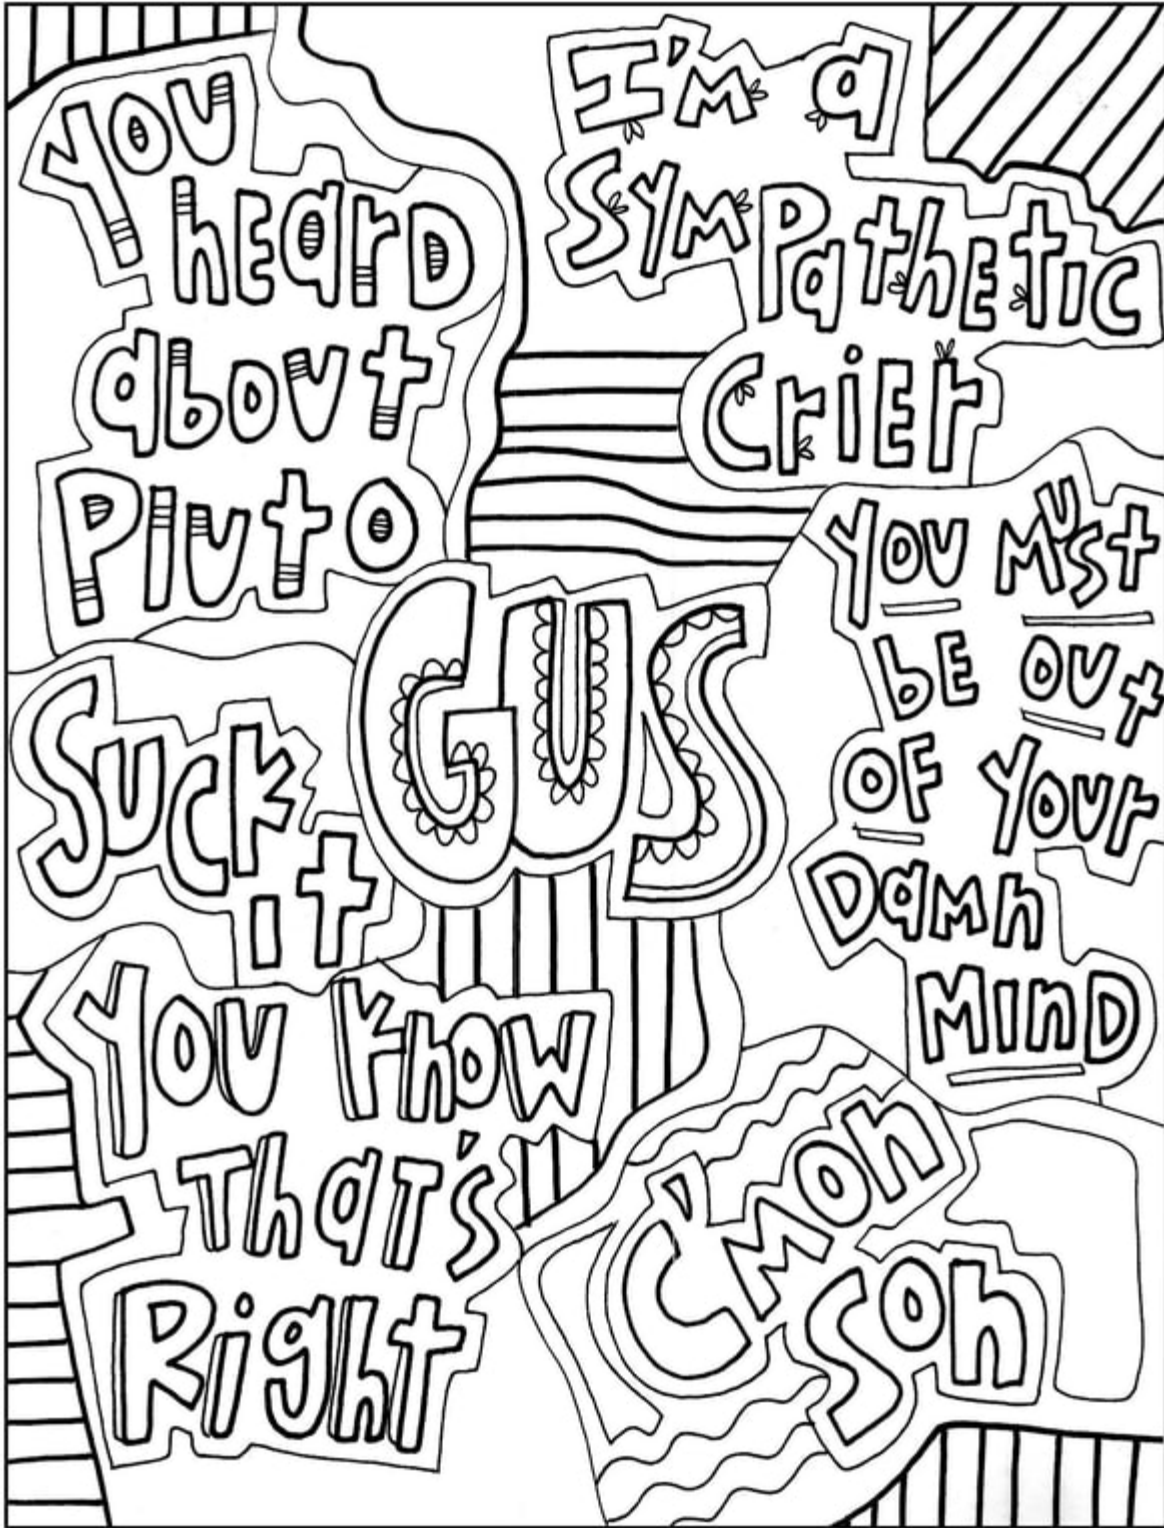 YOU
hEarD
about
Pluto
I'm a
SYMPathEtIC
CriEr
YOU MUST
bE OUt
OF Your
Damn
MInD
GUS
SUCK
it
YOU KnoW
ThaT's
Right
C'MOn
SOn